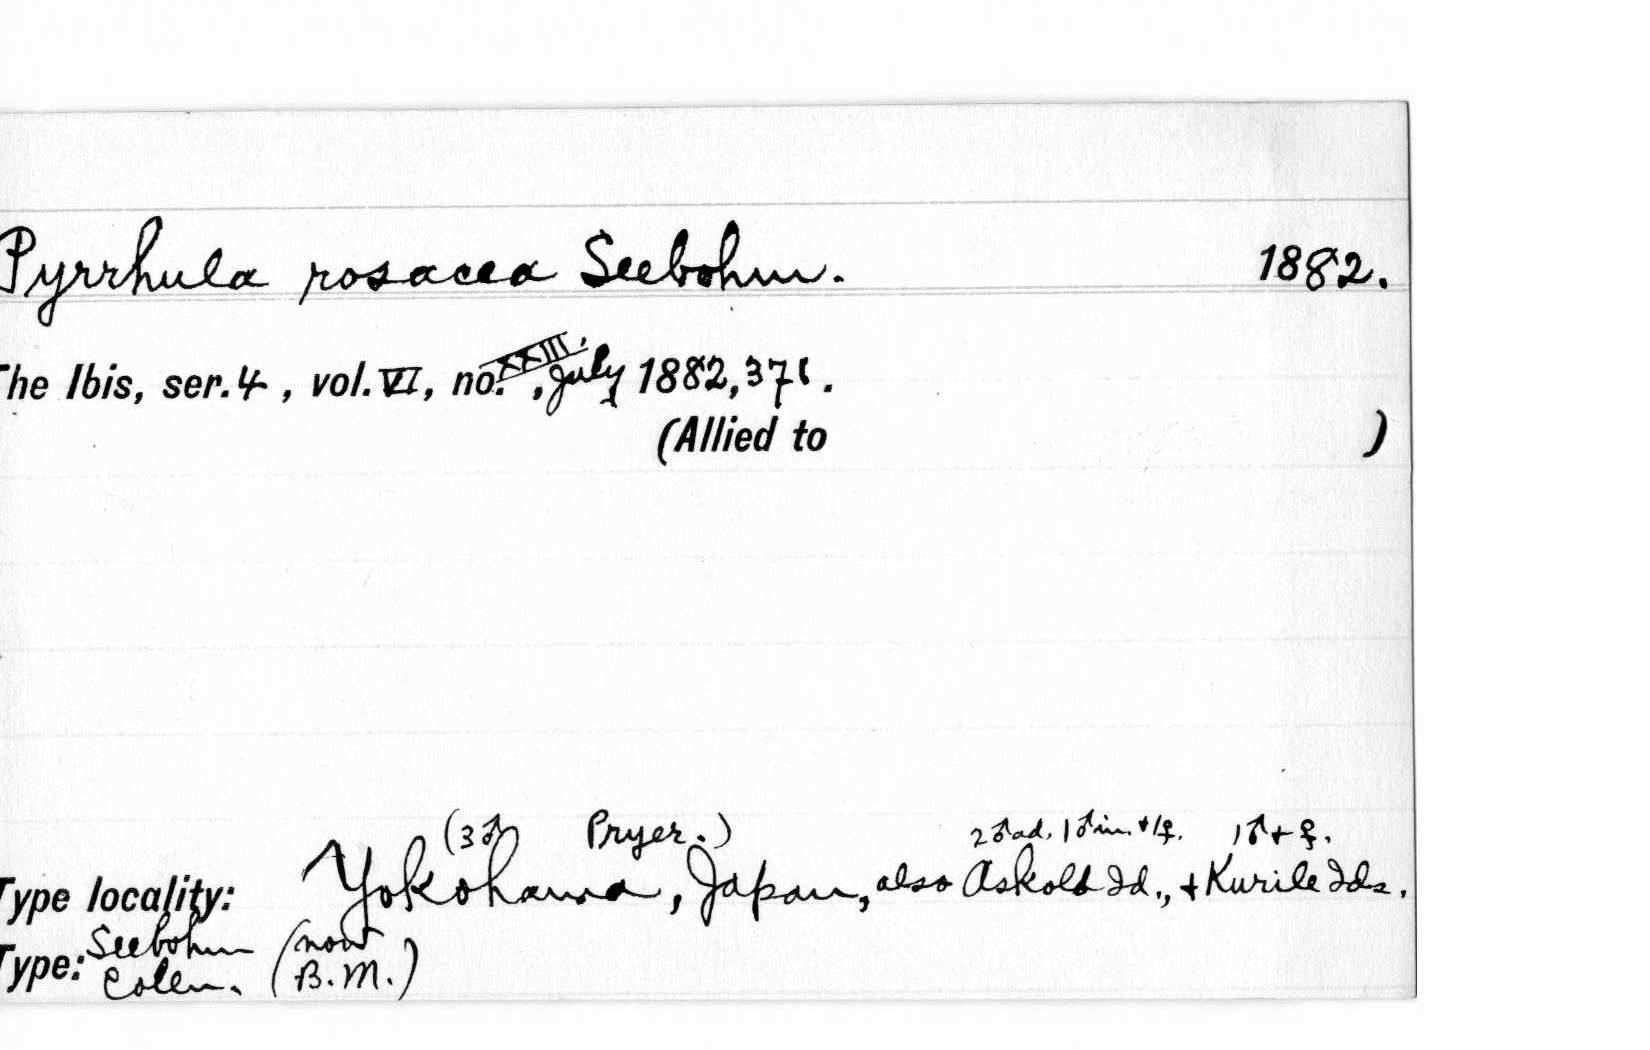 Pyrrhula rosacea Seebohm. 1882.
The Ibis, ser. 4, vol. VI, no. XXIII, July 1882, 371.
(Allied to )
(3♂ Pryer.) 2♂ad. 1♂im. + 1♀. 1♂ + ♀.
Type locality: Yokohama, Japan, also Askold Id., + Kurile Ids.
Type: Seebohm Colln. (now B.M.)